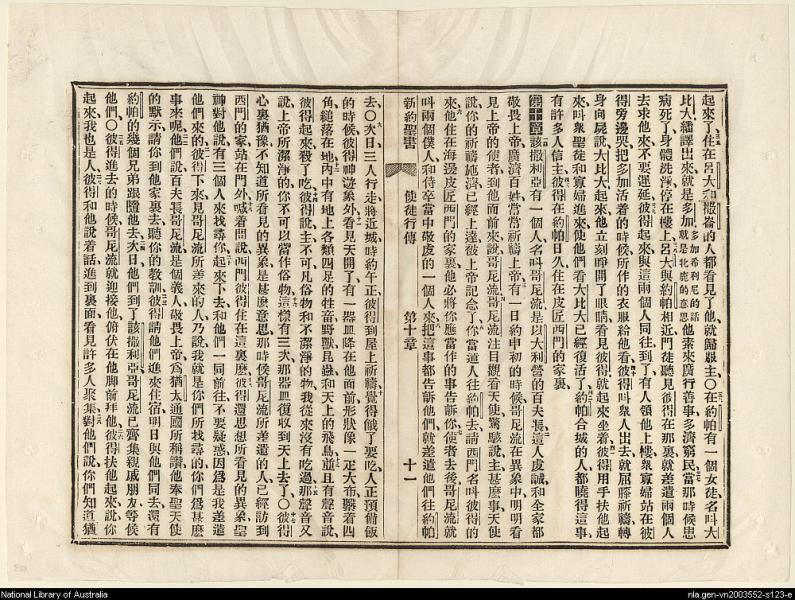 起來了住在呂大和撒崙的人都看見了他就歸服主〇在約帕有一個女徒名叫大
比大繙譯出來就是多加多加希利尼的話就是牝鹿的意思他素來廣行善事多濟窮民當那時候患
病死了身體洗淨停在樓上呂大與約帕相近門徒聽見彼得在那裏就差遣兩個人
去求他來不要遲延彼得起來與這兩個人同往到了有人領他上樓衆寡婦站在彼
得旁邊哭把多加活着的時候所作的衣服給他看彼得叫衆人出去就屈膝祈禱轉
身向屍說大比大起來他立刻睜開了眼睛看見彼得就起來坐着彼得用手扶他起
來叫衆聖徒和寡婦進來使他們看大比大已經復活了約帕合城的人都曉得這事
有許多人信主彼得在約帕日久住在皮匠西門的家裏
第十章該撒利亞有一個人名叫哥尼流是以大利營的百夫長這人虔誠和全家都
敬畏上帝廣濟百姓常常祈禱上帝有一日約申初的時候哥尼流在異象中明明看
見上帝的使者到他面前來說哥尼流哥尼流注目觀看天使驚駭說主甚麽事天使
說你的祈禱施濟已經上達彼上帝記念了你當遣人往約帕去請西門名叫彼得的
來他住在海邊皮匠西門的家裏他必將你應當作的事告訴你使者去後哥尼流就
叫兩個僕人和侍卒當中敬虔的一個人來把這事都告訴他們就差遣他們往約帕
新約聖書 使徒行傳 第十章 十一
去〇次日三人行走將近城時約午正彼得到屋上祈禱覺得餓了要吃人正預備飯
的時候彼得神遊象外看見天開了有一器皿降在他面前形狀像一疋大布繫着四
角縋落在地內中有地上各類四足的牲畜野獸昆蟲和天上的飛鳥並且有聲音說
彼得起來殺了吃彼得說主不可凡俗物和不潔淨的物我從來沒有吃過那聲音又
說上帝所潔淨的你不可以當作俗物這樣有三次那器皿復收到天上去了〇彼得
心裏猶豫不知道所看見的異象是甚麽意思那時候哥尼流所差遣的人已經訪到
西門的家站在門外喊着問說西門彼得住在這裏麽彼得還思想所看見的異象聖
神對他說有三個人來找尋你起來下去和他們一同前往不要疑惑因爲是我差遣
他們來的彼得下來見哥尼流所差來的人乃說我就是你們所找尋的你們爲甚麽
事來呢他們說百夫長哥尼流是個義人敬畏上帝爲猶太通國所稱讚他奉聖天使
的默示請你到他家裏去聽你的教訓彼得請他們進來住宿明日與他們同去還有
約帕的幾個兄弟跟隨他去次日他們到了該撒利亞哥尼流已齊集親戚朋友等候
他們〇彼得進去的時候哥尼流就迎接他俯伏在他脚前拜他彼得扶他起來說你
起來我也是人彼得和他說着話進到裏面看見許多人聚集對他們說你們知道猶
National Library of Australia
nla.gen-vn2003552-s123-e